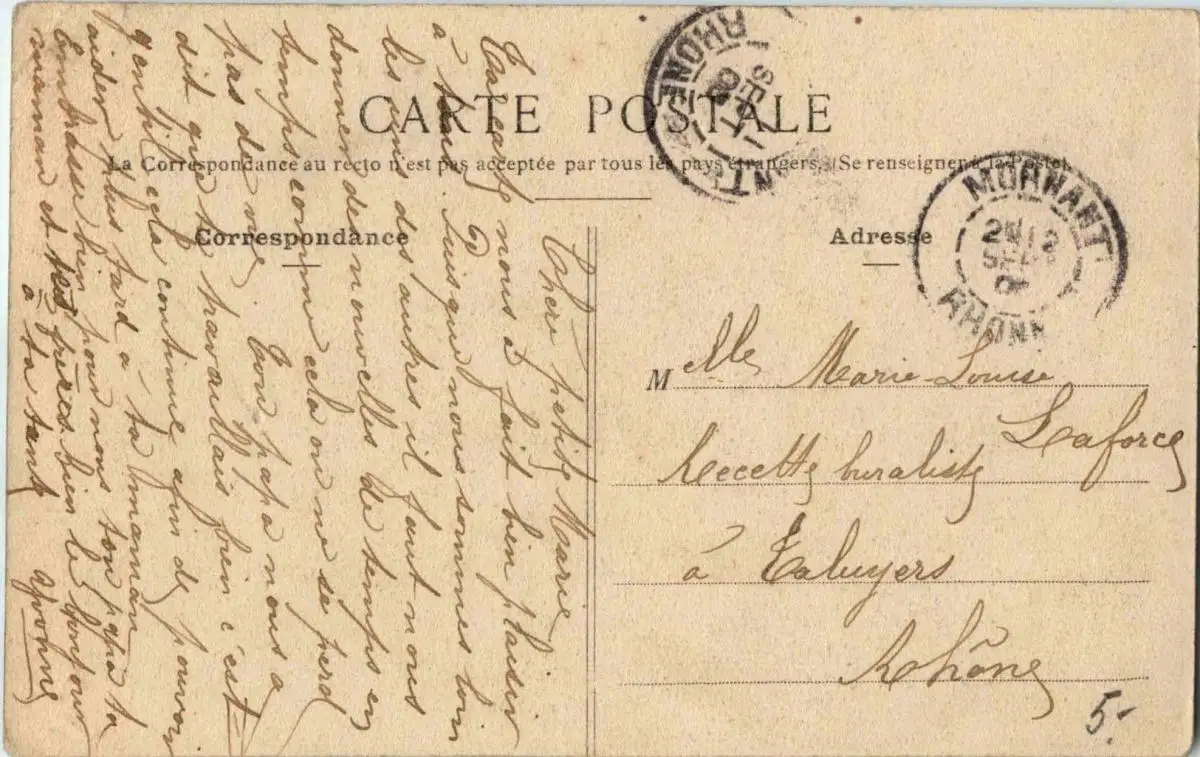 CARTE POSTALE
La Correspondance au recto n'est pas acceptée par tous les pays étrangers. (Se renseigner à la Poste).
Correspondance
Adresse
RHONE
SEPT
MORNANT
RHONE
Chère petite Marie
Ta carte nous à fait bien plaisir
à tous. Puisque nous sommes loin
les uns des autres il faut nous
donner de nouvelles de temps en
temps comme cela on ne se perd
pas de vue. Ton papa nous a
dit que tu travaillais bien c'est
gentil cela continue afin de pouvoir
aider plus tard a ta maman
Embrasse bien pour nous ton papa ta
maman et tes frères bien le bonjour
à ta tante Yvonne
Mlle Marie-Louise
Laforce
Recette buraliste
à Taluyers
Rhône
5-